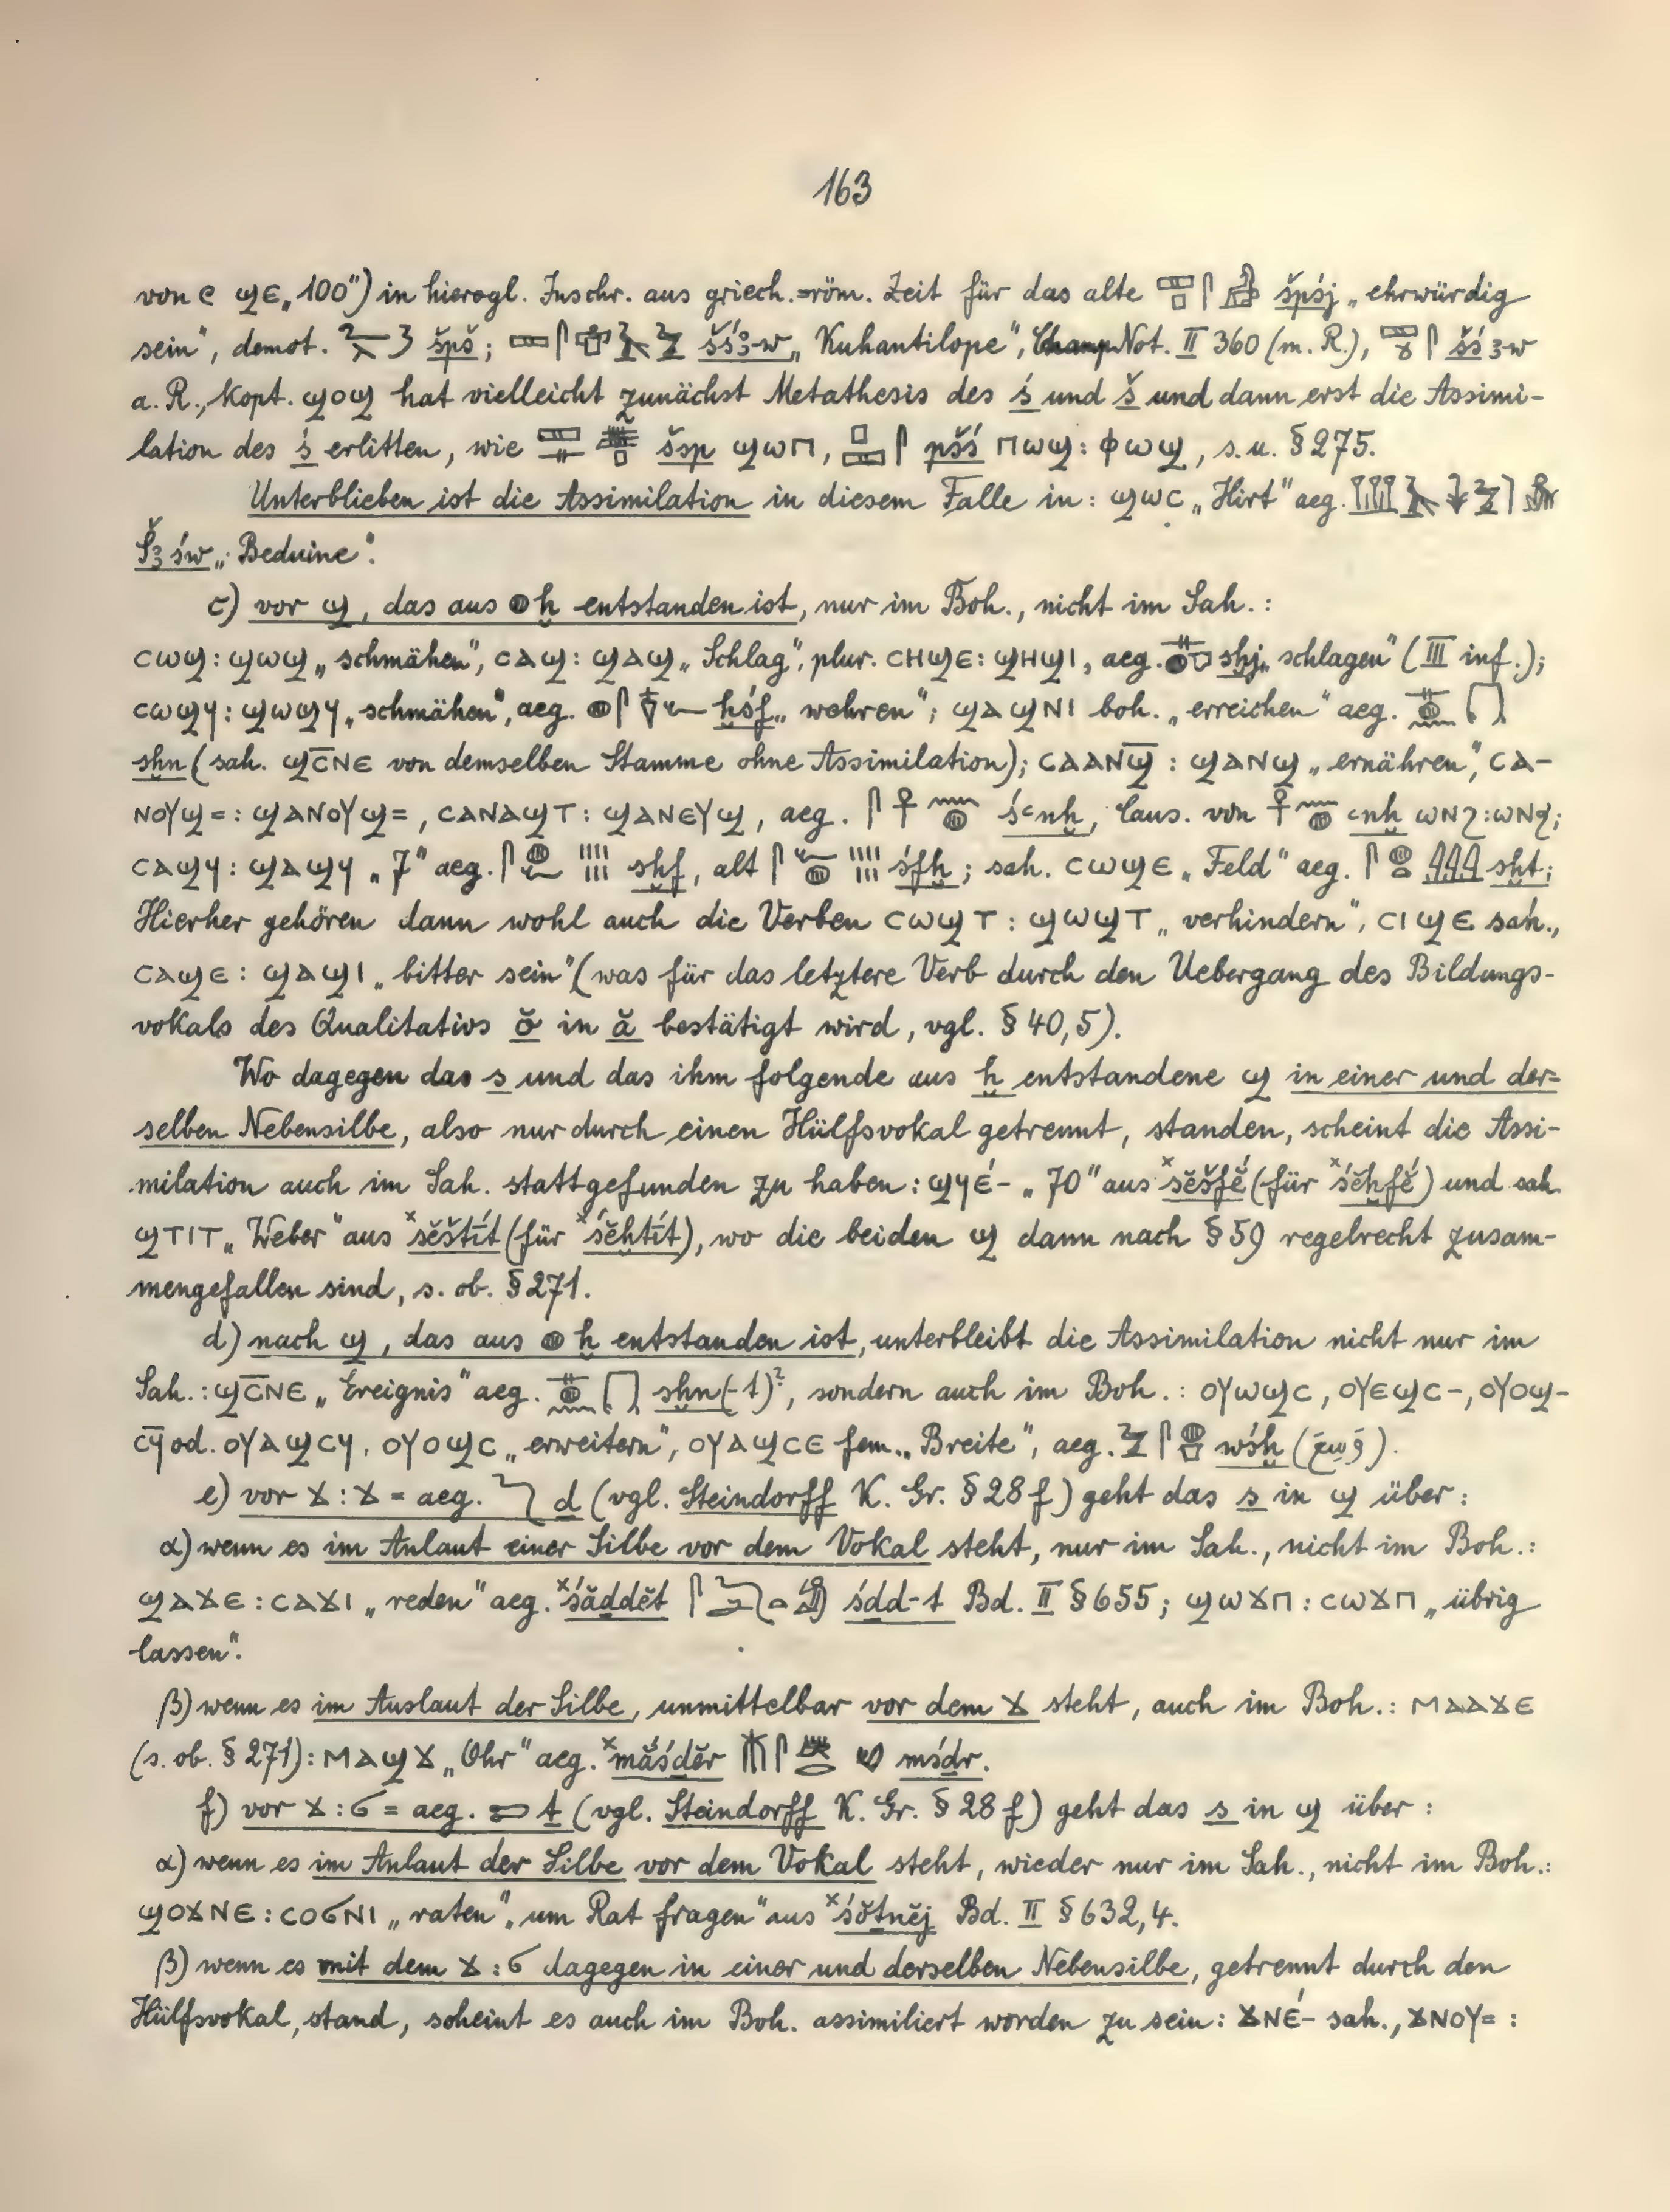 163
von ϣⲉ „100“) in hierogl. Inschr. aus griech.-röm. Zeit für das alte špśj „ehrwürdig
sein“, demot. špš; šśꜣ-w „Kuhantilope“, Champ Not. II 360 (m. R.), šśꜣw
a. R., kopt. ϣⲟϣ hat vielleicht zunächst Metathesis des ś und š und dann erst die Assimi-
lation des ś erlitten, wie šsp ϣⲱⲡ, pšś ⲡⲱϣ: ⲫⲱϣ, s. u. § 275.
Unterblieben ist die Assimilation in diesem Falle in: ϣⲱⲥ „Hirt“ aeg.
Šꜣśw „Beduine“.
c) vor ϣ, das aus 𓐍 ḫ entstanden ist, nur im Boh., nicht im Sah.:
ⲥⲱϣ: ϣⲱϣ „schmähen“, ⲥⲁϣ: ϣⲁϣ „Schlag“, plur. ⲥⲏϣⲉ: ϣⲏϣⲓ, aeg. sḫj „schlagen“ (III inf.);
ⲥⲱϣϥ: ϣⲱϣϥ „schmähen“, aeg. ḫśf „wehren“; ϣⲁϣⲛⲓ boh. „erreichen“ aeg.
sḫn (sah. ϣⲥ̅ⲛⲉ von demselben Stamme ohne Assimilation); ⲥⲁⲁⲛϣ̅ : ϣⲁⲛϣ „ernähren“, ⲥⲁ-
ⲛⲟⲩϣ=: ϣⲁⲛⲟⲩϣ=, ⲥⲁⲛⲁϣⲧ: ϣⲁⲛⲉⲩϣ, aeg. 𓋴𓋹𓈖𓐍 śꜥnḫ, Caus. von 𓋹𓈖𓐍 ꜥnḫ ⲱⲛϩ:ⲱⲛϧ;
ⲥⲁϣϥ: ϣⲁϣϥ „7“ aeg. sḫf, alt śfḫ; sah. ⲥⲱϣⲉ „Feld“ aeg. sḫt;
Hierher gehören dann wohl auch die Verben ⲥⲱϣⲧ: ϣⲱϣⲧ „verhindern“, ⲥⲓϣⲉ sah.,
ⲥⲁϣⲉ: ϣⲁϣⲓ „bitter sein“ (was für das letztere Verb durch den Uebergang des Bildungs-
vokals des Qualitativs ŏ in ă bestätigt wird, vgl. § 40,5).
Wo dagegen das s und das ihm folgende aus ḫ entstandene ϣ in einer und der-
selben Nebensilbe, also nur durch einen Hülfsvokal getrennt, standen, scheint die Assi-
milation auch im Sah. stattgefunden zu haben: ϣϥⲉ́- „70“ aus ˣšĕšfĕ́ (für ˣśĕḫfĕ́) und sah.
ϣⲧⲓⲧ „Weber“ aus ˣšĕštít (für ˣśĕḫtít), wo die beiden ϣ dann nach § 59 regelrecht zusam-
mengefallen sind, s. ob. § 271.
d) nach ϣ, das aus 𓐍 ḫ entstanden ist, unterbleibt die Assimilation nicht nur im
Sah.: ϣⲥ̅ⲛⲉ „Ereignis“ aeg. sḫn(-t)?, sondern auch im Boh.: ⲟⲩⲱϣⲥ, ⲟⲩⲉϣⲥ-, ⲟⲩⲟϣ-
ⲥϥ̅ od. ⲟⲩⲁϣⲥϥ, ⲟⲩⲟϣⲥ „erweitern“, ⲟⲩⲁϣⲥⲉ fem. „Breite“, aeg. wśḫ (وسع).
e) vor ϫ:ϫ = aeg. 𓆓 ḏ (vgl. Steindorff K. Gr. § 28f) geht das s in ϣ über:
α) wenn es im Anlaut einer Silbe vor dem Vokal steht, nur im Sah., nicht im Boh.:
ϣⲁϫⲉ: ⲥⲁϫⲓ „reden“ aeg. ˣśăddĕt śdd-t Bd. II § 655; ϣⲱϫⲡ: ⲥⲱϫⲡ „übrig
lassen“.
β) wenn es im Auslaut der Silbe, unmittelbar vor dem ϫ steht, auch im Boh.: ⲙⲁⲁϫⲉ
(s. ob. § 271): ⲙⲁϣϫ „Ohr“ aeg. ˣmắśḏĕr mśḏr.
f) vor ϫ:ϭ = aeg. 𓍿 ṯ (vgl. Steindorff K. Gr. § 28f) geht das s in ϣ über:
α) wenn es im Anlaut der Silbe vor dem Vokal steht, wieder nur im Sah., nicht im Boh.:
ϣⲟϫⲛⲉ: ⲥⲟϭⲛⲓ „raten“, „um Rat fragen“ aus ˣśŏ́ṯnĕj Bd. II § 632,4.
β) wenn es mit dem ϫ:ϭ dagegen in einer und derselben Nebensilbe, getrennt durch den
Hülfsvokal, stand, scheint es auch im Boh. assimiliert worden zu sein: ϫⲛⲉ́- sah., ϫⲛⲟⲩ= :